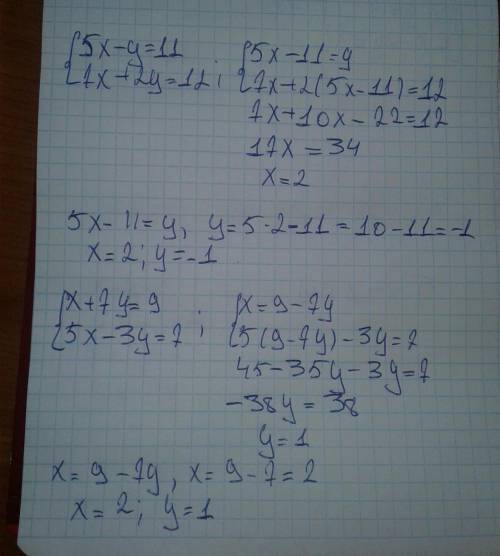 {5x-y=11 ; {5x-11=y
{7x+2y=12 {7x+2(5x-11)=12
7x+10x-22=12
17x=34
x=2
5x-11=y, y=5·2-11=10-11=-1
x=2; y=-1
{x+7y=9 ; {x=9-7y
{5x-3y=7 {5(9-7y)-3y=7
45-35y-3y=7
-38y=38
y=1
x=9-7y, x=9-7=2
x=2; y=1